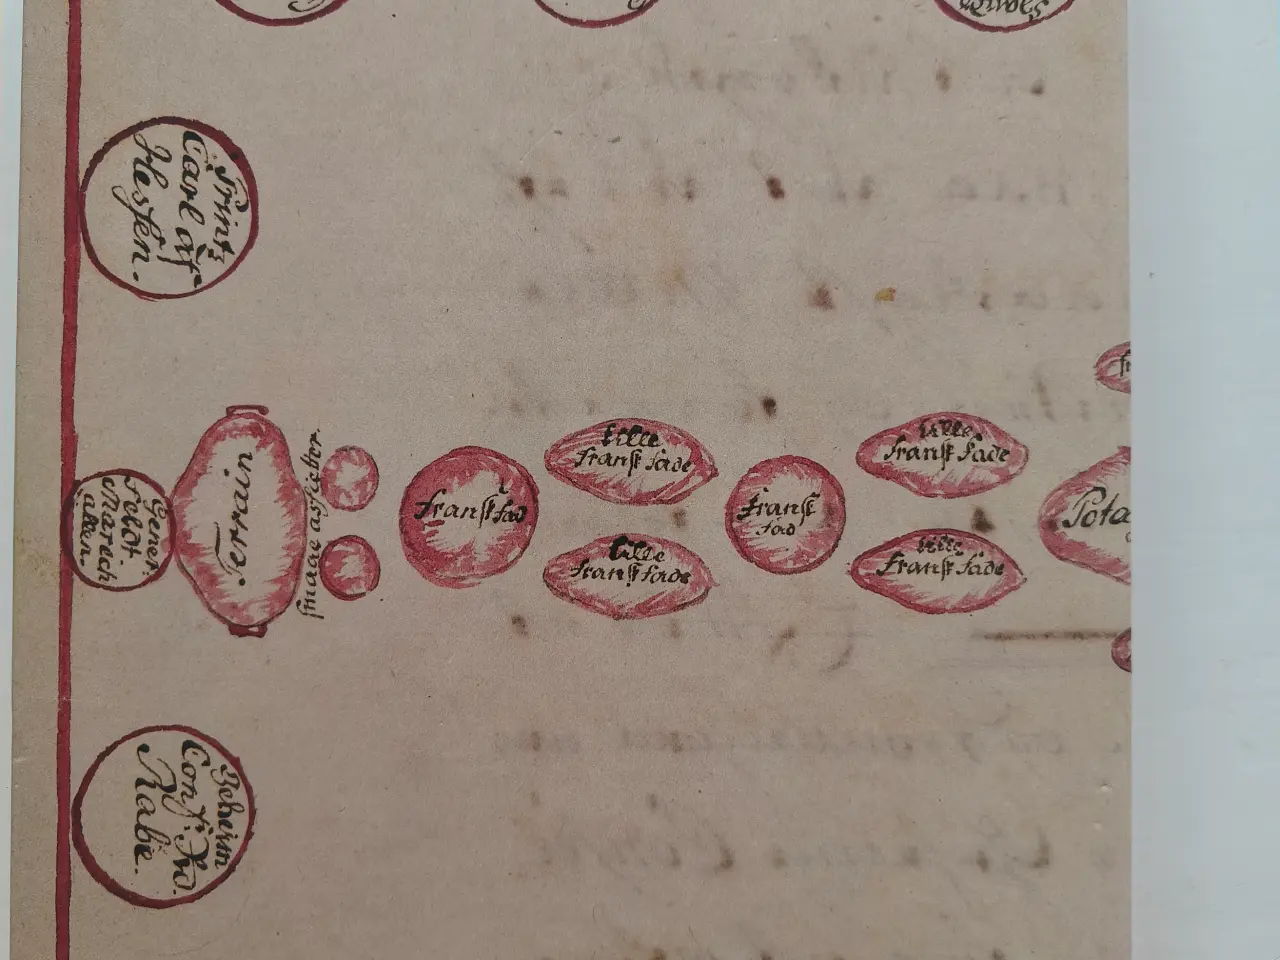 Printz
Carl af
Hessen.
Gener:
Feldt
Marsch
allen.
Terrain
smaae assietter.
fransk fad
lille
fransk fade
lille
fransk fade
fransk
fad
lille
fransk fade
lille
fransk fade
Pota
fr
Geheim
Conf: R
Rabe.